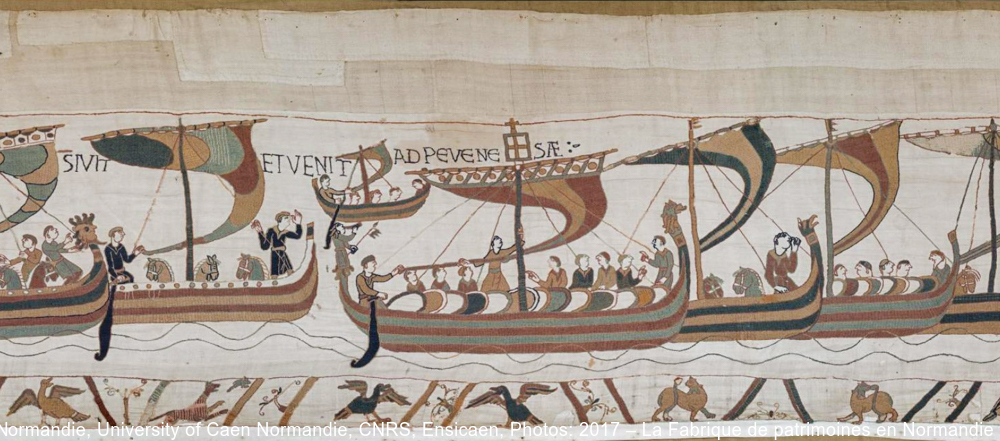 SIVIT ET VENIT AD PEVENESÆ :-
Normandie, University of Caen Normandie, CNRS, Ensicaen, Photos: 2017 – La Fabrique de patrimoines en Normandie